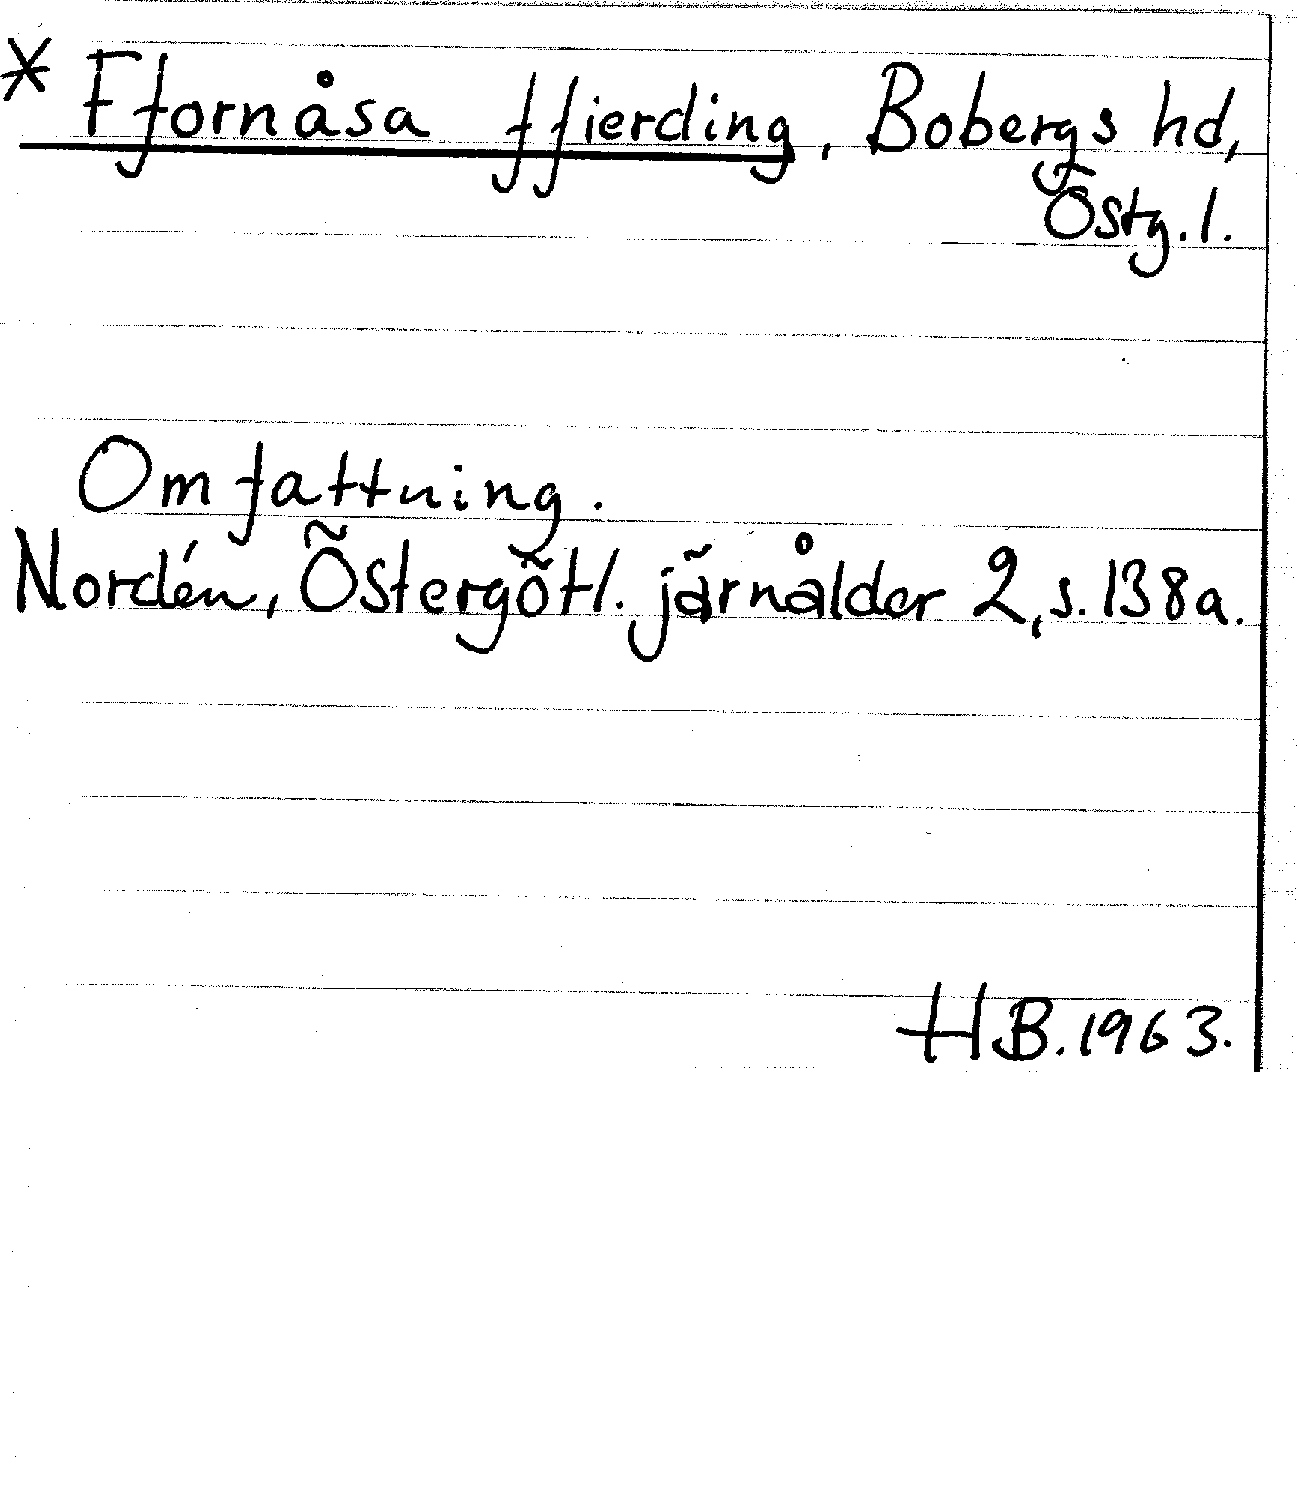 * Ffornåsa ffierding, Bobergs hd,
Östg. l.
Omfattning.
Nordén, Östergötl. järnålder 2, s. 138a.
HB. 1963.